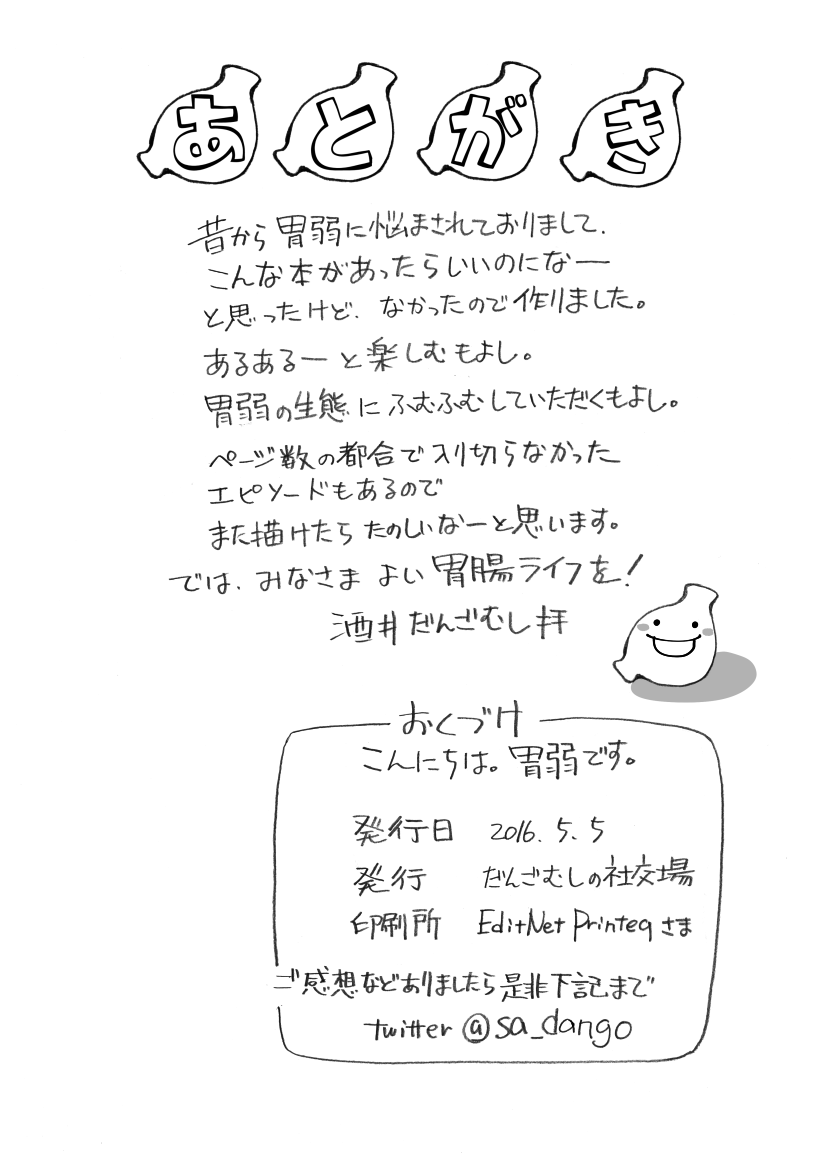 あとがき
昔から胃弱に悩まされておりまして、
こんな本があったらいいのになー
と思ったけど、なかったので作りました。
あるあるーと楽しむもよし。
胃弱の生態にふむふむしていただくもよし。
ページ数の都合で入り切らなかった
エピソードもあるので
また描けたらたのしいなーと思います。
では、みなさま よい胃腸ライフを!
酒井だんごむし拝
おくづけ
こんにちは。胃弱です。
発行日 2016.5.5
発行 だんごむしの社交場
印刷所 EditNet Printeqさま
ご感想などありましたら是非下記まで
twitter @sa_dango